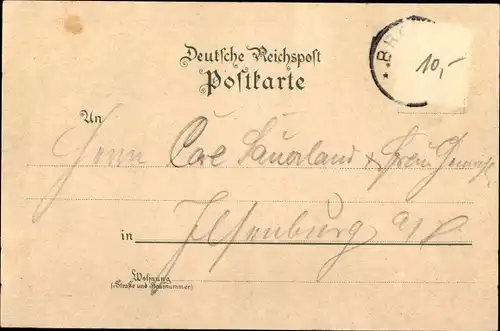 Deutsche Reichspost
Postkarte
* BR
10,-
An
Herrn Carl Sauerland & Frau Gemahl
in Ilsenburg a/H
Wohnung
(Straße und Hausnummer)